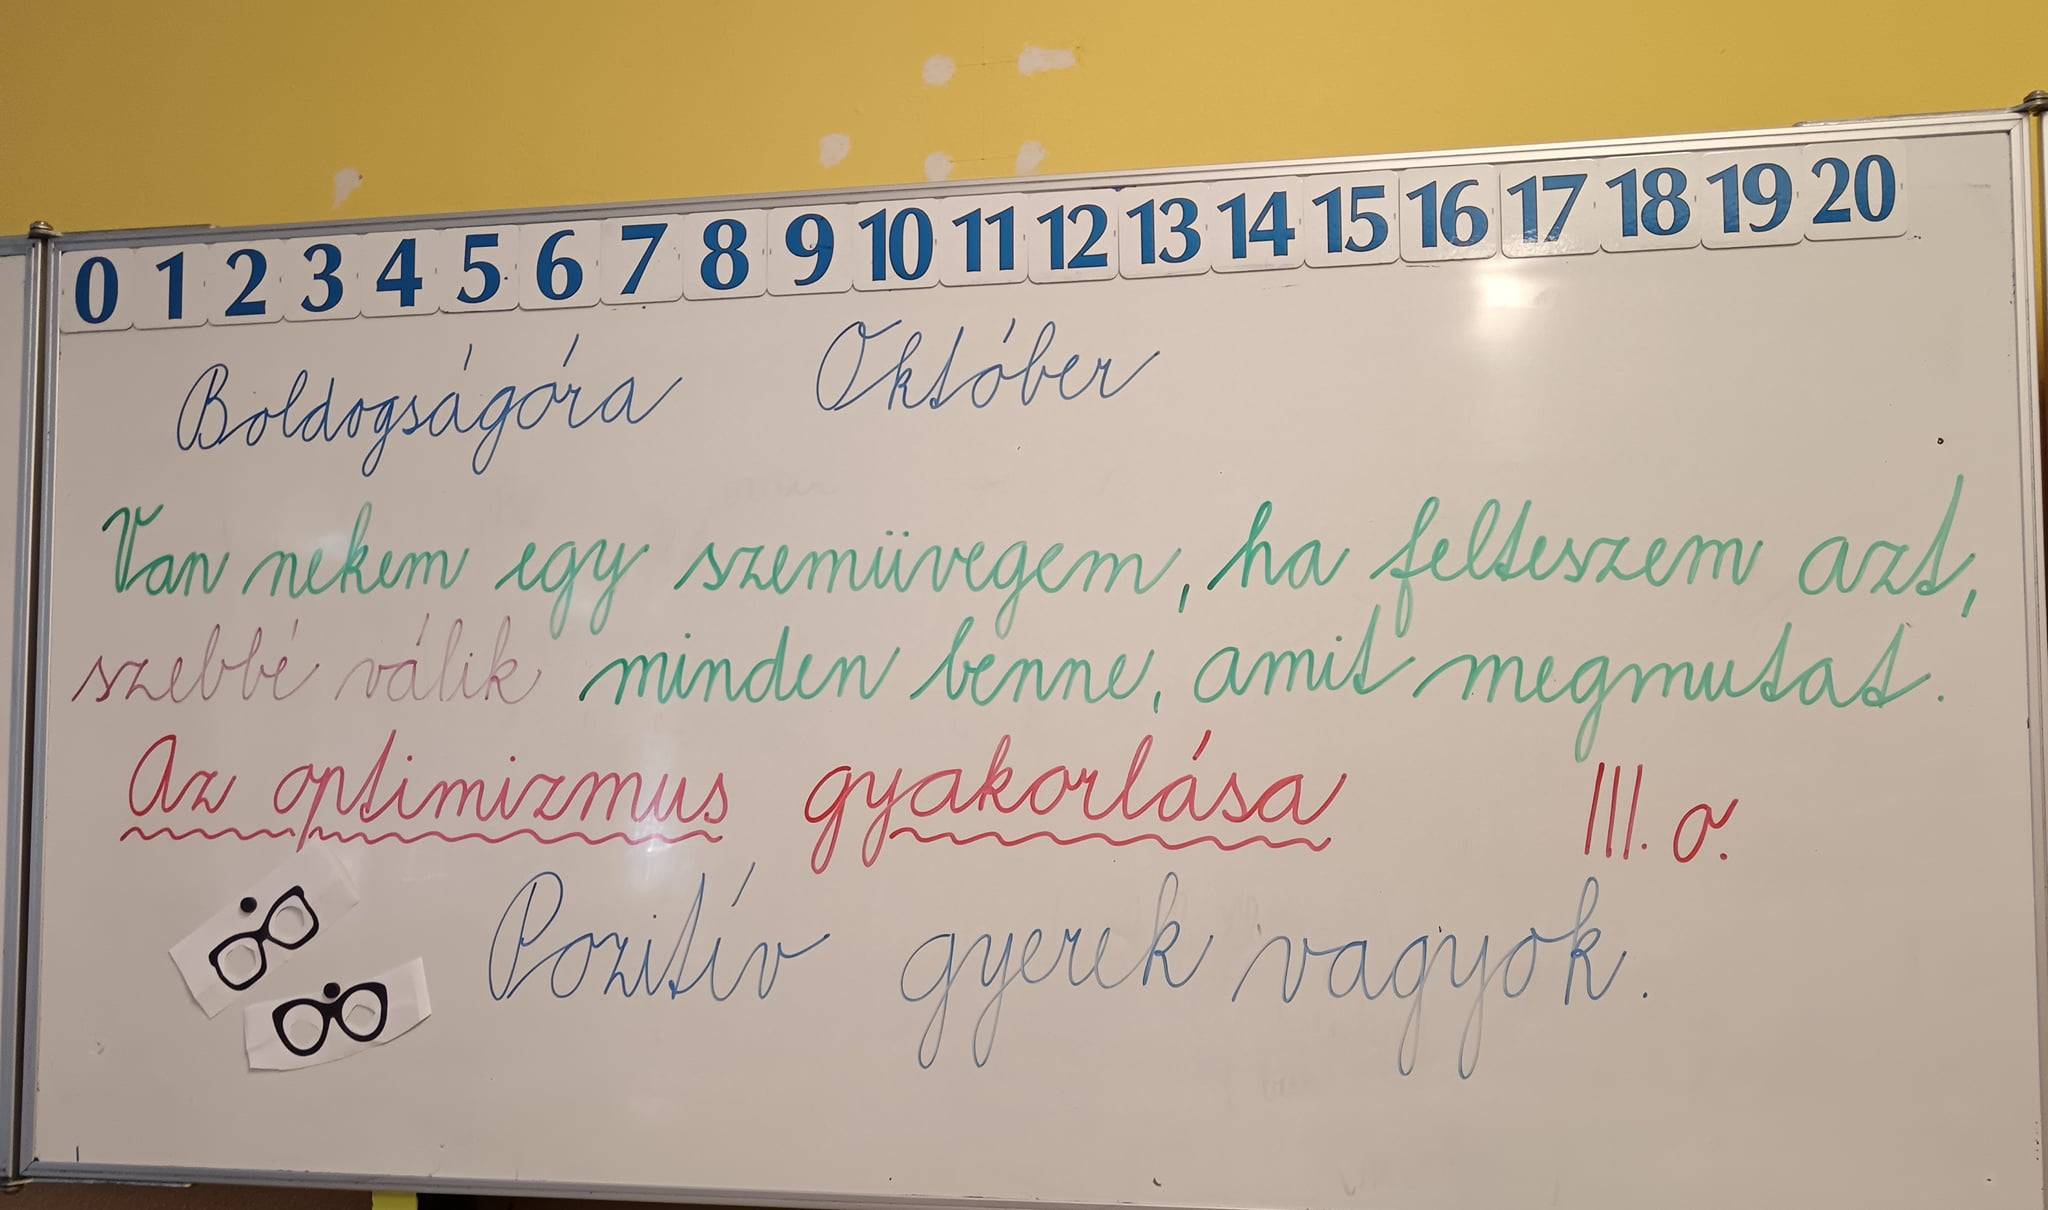 0 1 2 3 4 5 6 7 8 9 10 11 12 13 14 15 16 17 18 19 20
Boldogságóra Október
Van nekem egy szemüvegem, ha felteszem azt,
szebbé válik minden benne, amit megmutat.
Az optimizmus gyakorlása III. o.
Pozitív gyerek vagyok.